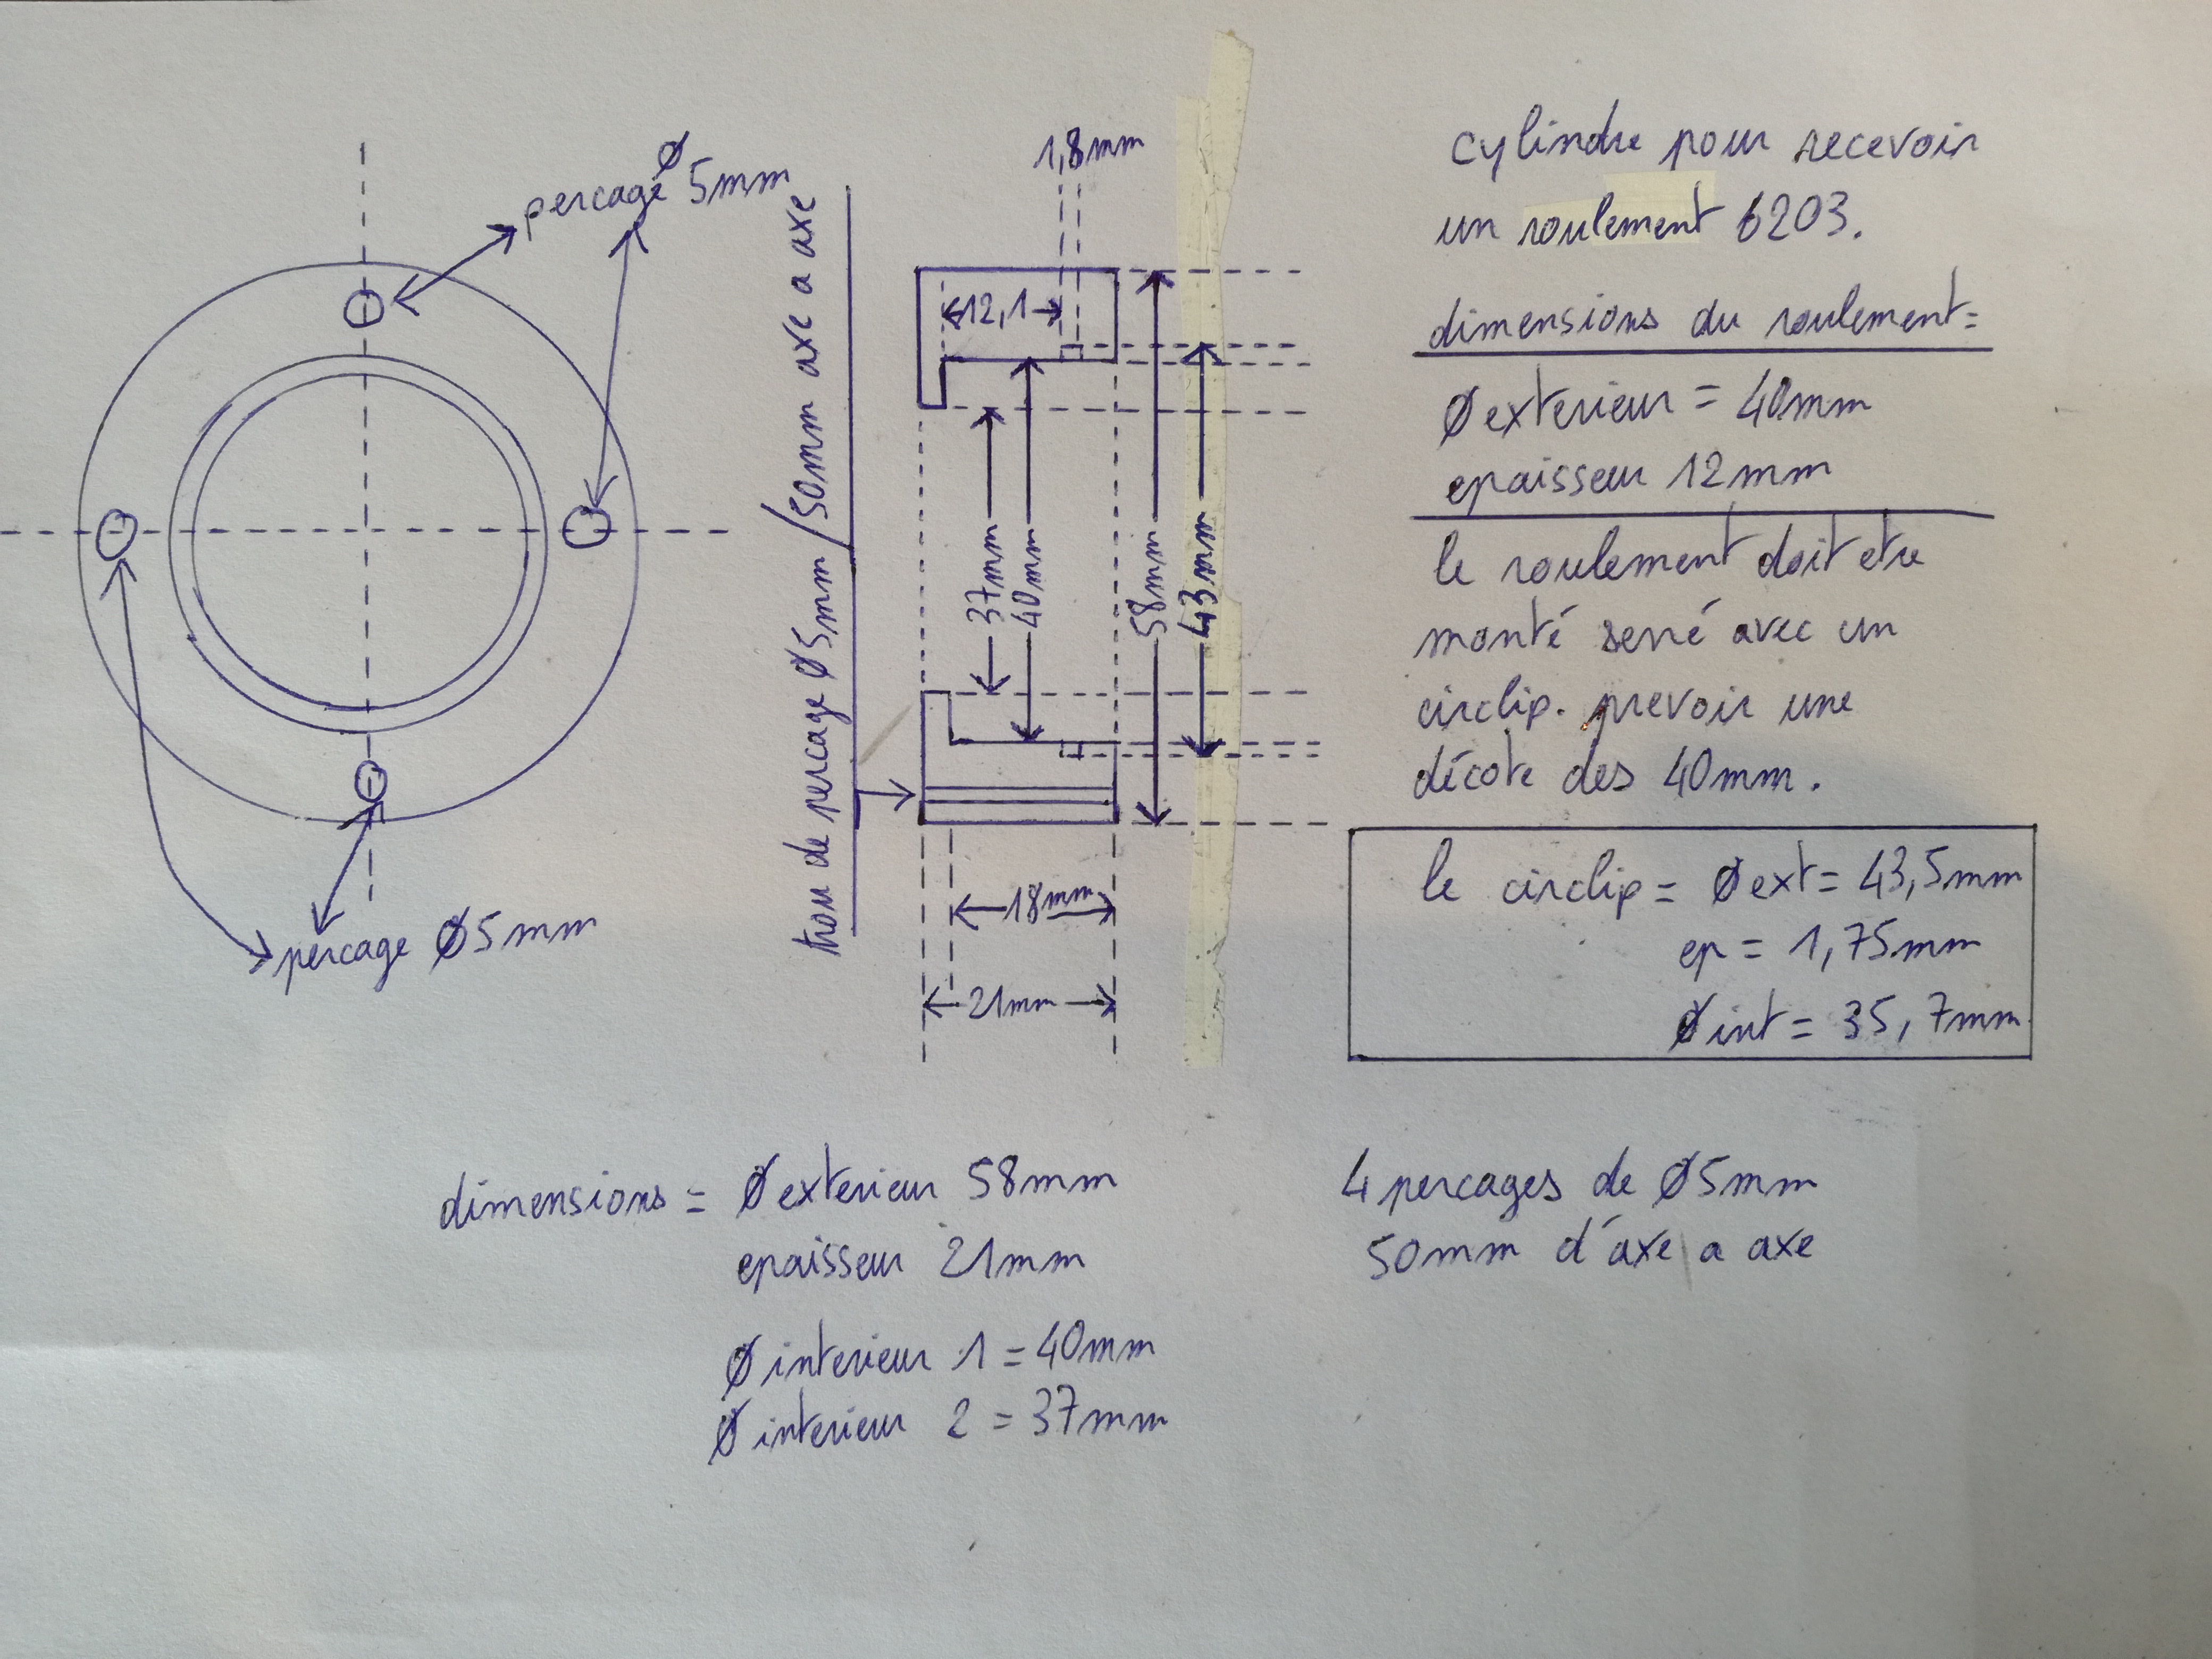 percage Ø 5mm
percage Ø5mm
trou de percage Ø5mm / 50mm axe a axe
1,8mm
12,1
37mm
40mm
58mm
43mm
18mm
21mm
cylindre pour recevoir
un roulement 6203.
dimensions du roulement =
Ø exterieur = 40mm
epaisseur 12mm
le roulement doit etre
monté serré avec un
circlip. prevoir une
décote des 40mm.
le circlip = Ø ext = 43,5mm
ep = 1,75mm
Ø int = 35,7mm
dimensions = Ø exterieur 58mm
epaisseur 21mm
Ø interieur 1 = 40mm
Ø interieur 2 = 37mm
4 percages de Ø5mm
50mm d'axe a axe